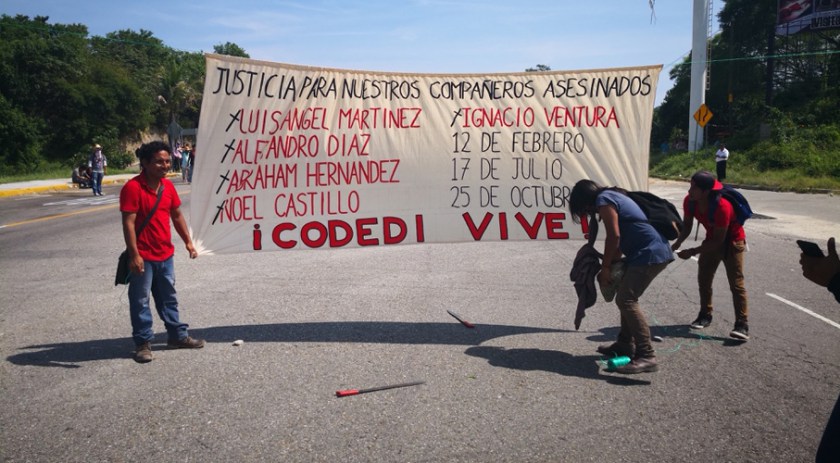 JUSTICIA PARA NUESTROS COMPAÑEROS ASESINADOS
LUIS ANGEL MARTINEZ
ALEJANDRO DIAZ
ABRAHAM HERNANDEZ
NOEL CASTILLO
IGNACIO VENTURA
12 DE FEBRERO
17 DE JULIO
25 DE OCTUBRE
¡CODEDI VIVE!